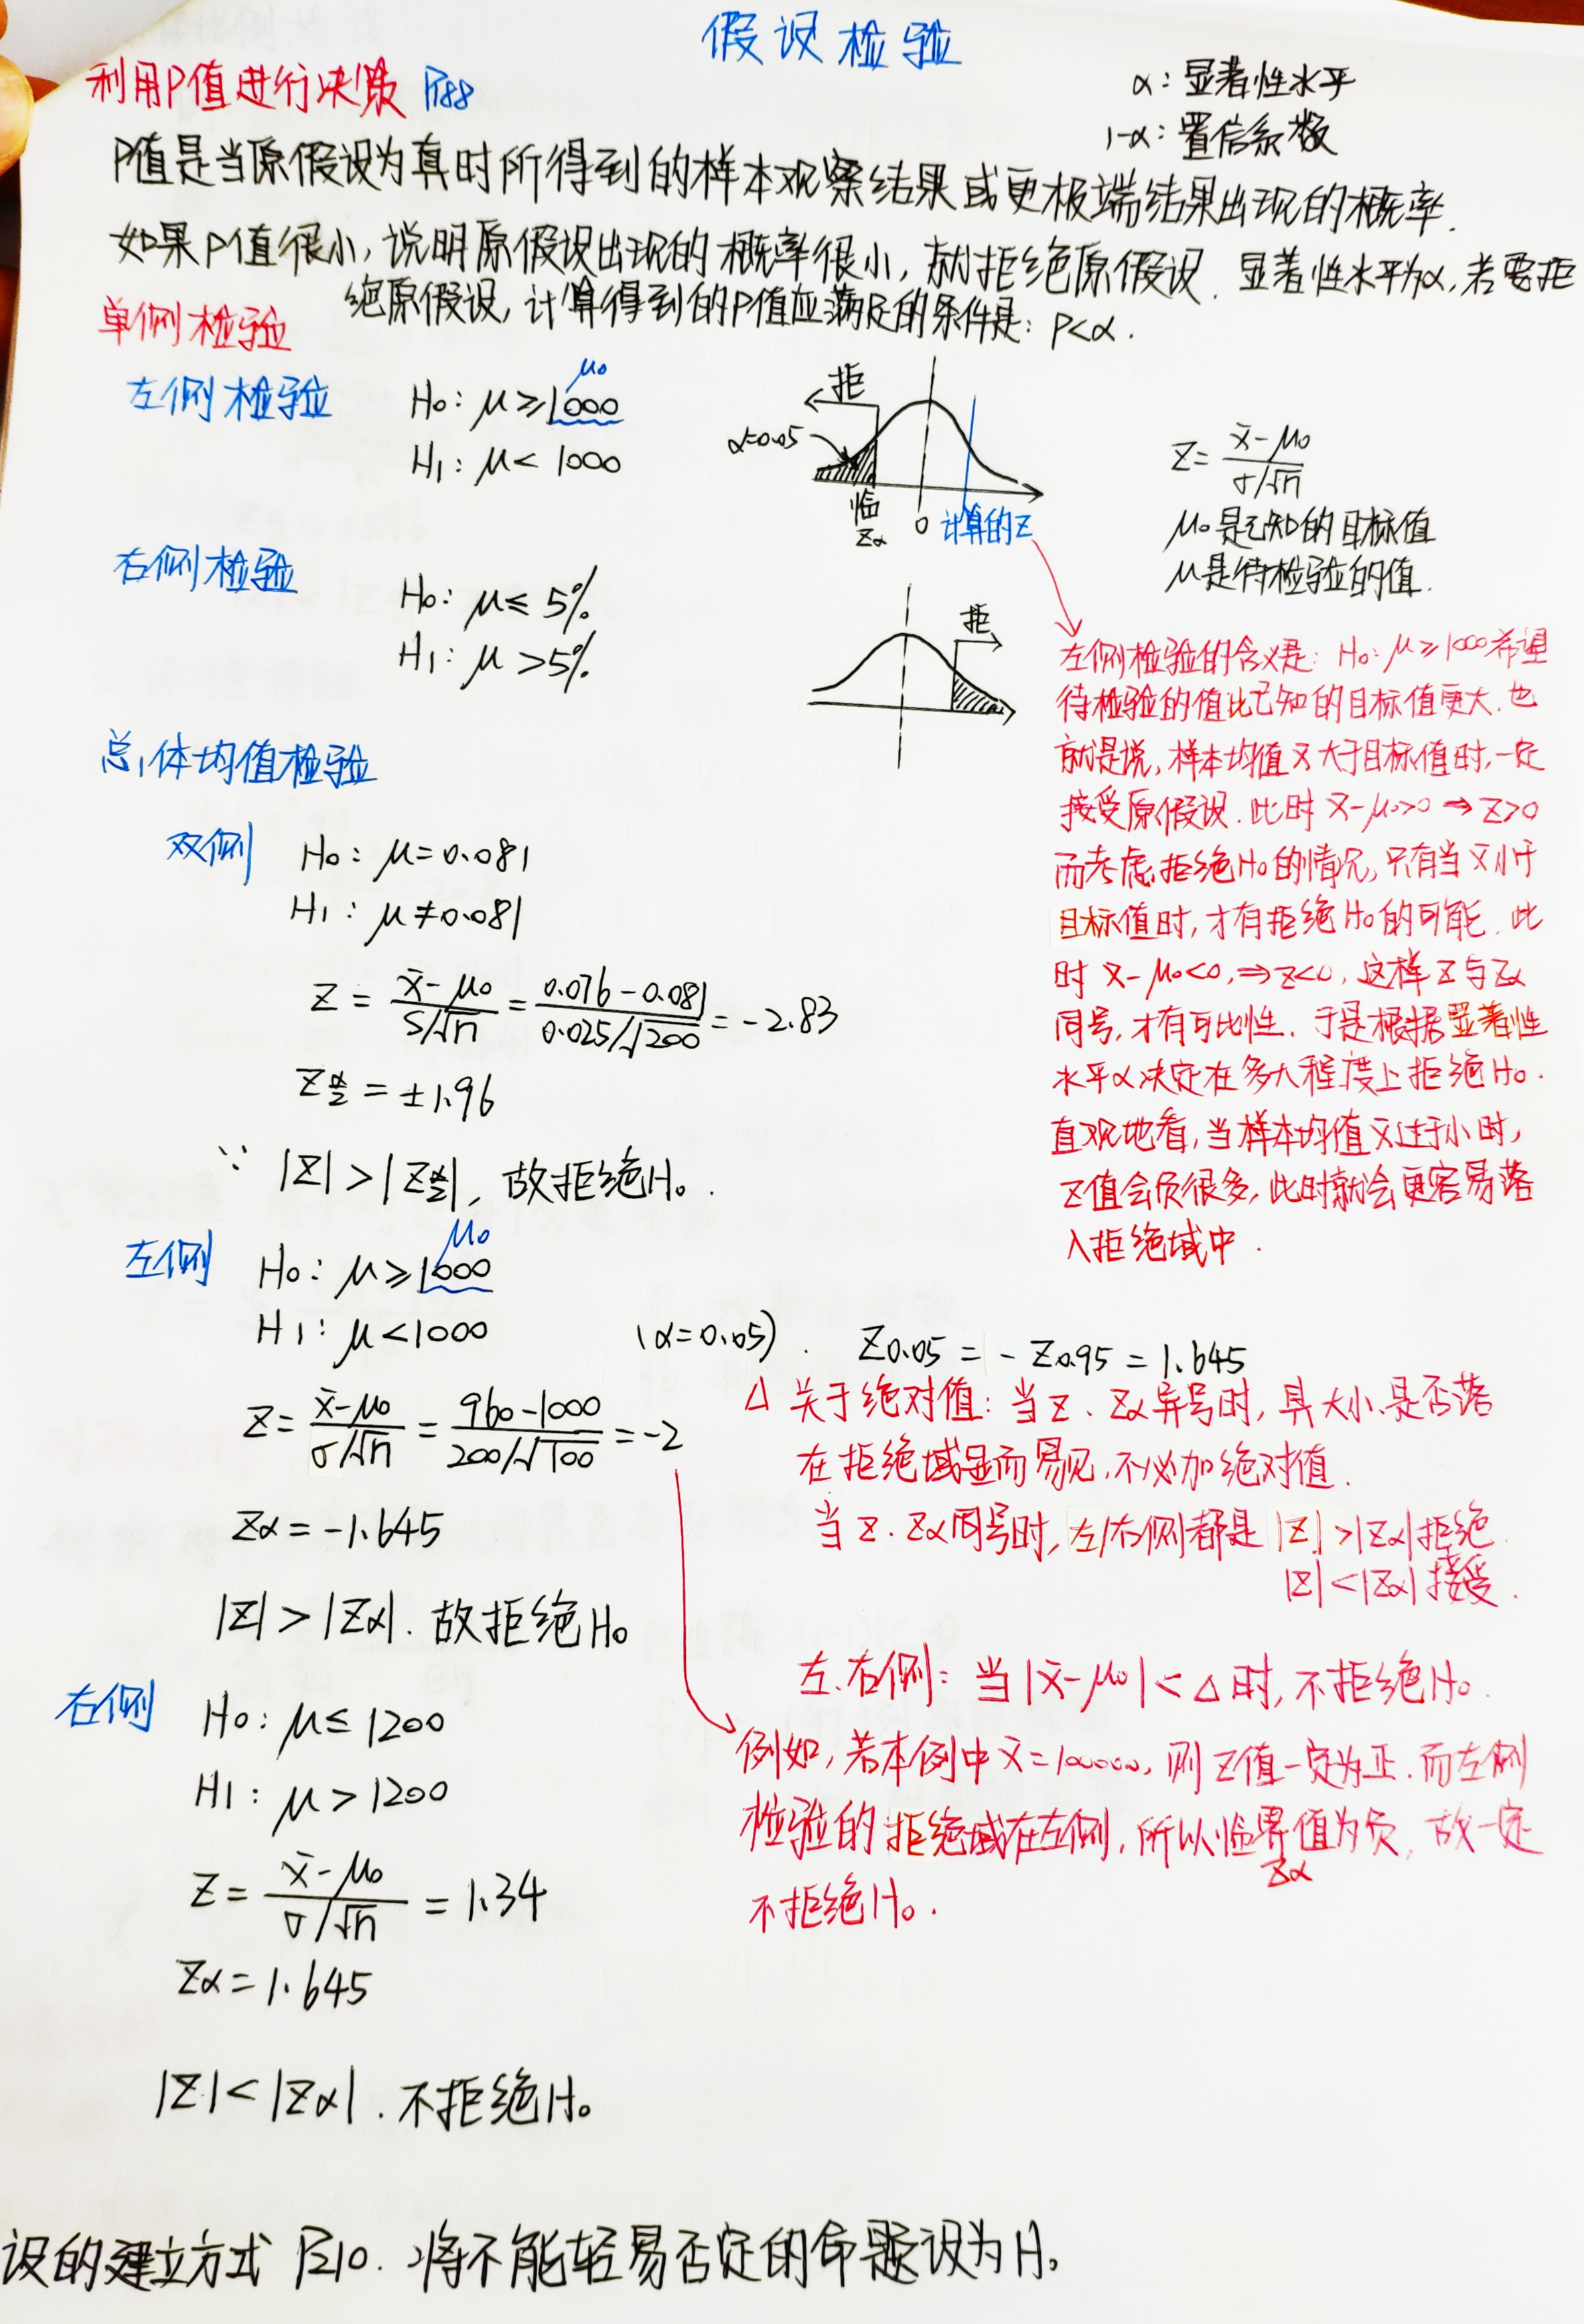 假设检验
利用P值进行决策 P188
α：显著性水平
1-α：置信系数
P值是当原假设为真时所得到的样本观察结果或更极端结果出现的概率.
如果P值很小，说明原假设出现的概率很小，就拒绝原假设. 显著性水平为α，若要拒
绝原假设，计算得到的P值应满足的条件是：P<α.
单侧检验
左侧检验
μ0
H0：μ≥1000
H1：μ<1000
拒
α=0.05
临
Zα
0
计算的Z
Z=(x̄-μ0)/(σ/√n)
μ0是已知的目标值
μ是待检验的值.
右侧检验
H0：μ≤5%
H1：μ>5%
拒
左侧检验的含义是：H0：μ≥1000希望
待检验的值比已知的目标值更大.也
就是说，样本均值x̄大于目标值时，一定
接受原假设.此时x̄-μ0>0⇒Z>0
而考虑拒绝H0的情况，只有当x̄小于
目标值时，才有拒绝H0的可能.此
时x̄-μ0<0,⇒Z<0，这样Z与Zα
同号，才有可比性.于是根据显著性
水平α决定在多大程度上拒绝H0.
直观地看，当样本均值x̄过于小时，
Z值会负很多，此时就会更容易落
入拒绝域中.
总体均值检验
双侧
H0：μ=0.081
H1：μ≠0.081
Z=(x̄-μ0)/(S/√n)=(0.076-0.081)/(0.025/√200)=-2.83
Zα/2=±1.96
∵ |Z|>|Zα/2|，故拒绝H0.
左侧
μ0
H0：μ≥1000
H1：μ<1000
(α=0.05). Z0.05=-Z0.95=1.645
Z=(x̄-μ0)/(σ/√n)=(960-1000)/(200/√100)=-2
Zα=-1.645
|Z|>|Zα|.故拒绝H0
△ 关于绝对值：当Z、Zα异号时，其大小、是否落
在拒绝域显而易见，不必加绝对值.
当Z.Zα同号时，左/右侧都是|Z|>|Zα|拒绝
|Z|<|Zα|接受.
左.右侧：当|x̄-μ0|<△时，不拒绝H0.
例如，若本例中x̄=100000，则Z值一定为正.而左侧
检验的拒绝域在左侧，所以临界值为负，故一定
Zα
不拒绝H0.
右侧
H0：μ≤1200
H1：μ>1200
Z=(x̄-μ0)/(σ/√n)=1.34
Zα=1.645
|Z|<|Zα|.不拒绝H0
设的建立方式 P210. 将不能轻易否定的命题设为H0